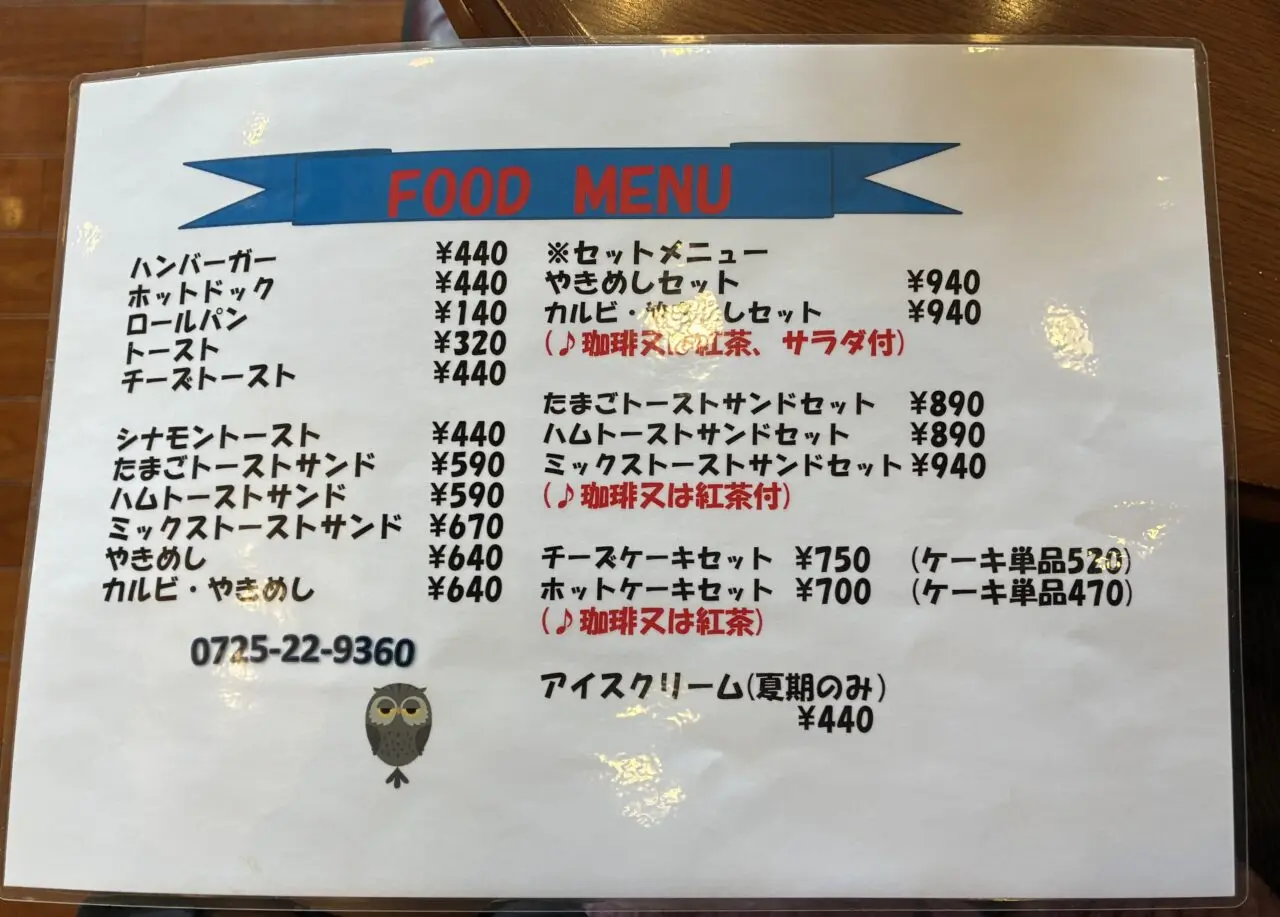 FOOD MENU
ハンバーガー ¥440
ホットドック ¥440
ロールパン ¥140
トースト ¥320
チーズトースト ¥440
シナモントースト ¥440
たまごトーストサンド ¥590
ハムトーストサンド ¥590
ミックストーストサンド ¥670
やきめし ¥640
カルビ・やきめし ¥640
0725-22-9360
※セットメニュー
やきめしセット ¥940
カルビ・やきめしセット ¥940
(♪珈琲又は紅茶、サラダ付)
たまごトーストサンドセット ¥890
ハムトーストサンドセット ¥890
ミックストーストサンドセット ¥940
(♪珈琲又は紅茶付)
チーズケーキセット ¥750 (ケーキ単品520)
ホットケーキセット ¥700 (ケーキ単品470)
(♪珈琲又は紅茶)
アイスクリーム(夏期のみ)
¥440